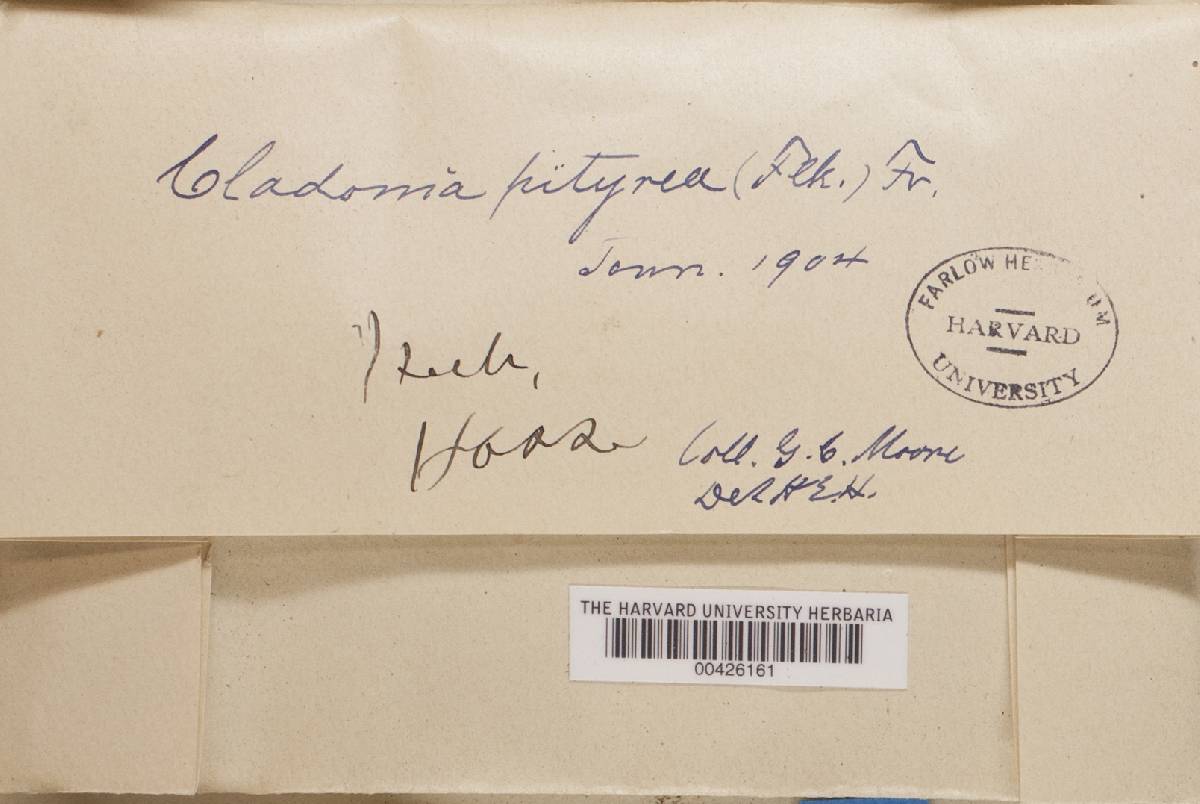 Cladonia pityrea (Flk.) Fr.
Tenn. 1904
FARLOW HE UM
HARVARD
UNIVERSITY
Coll. G. C. Moore
Det H E. H.
THE HARVARD UNIVERSITY HERBARIA
00426161